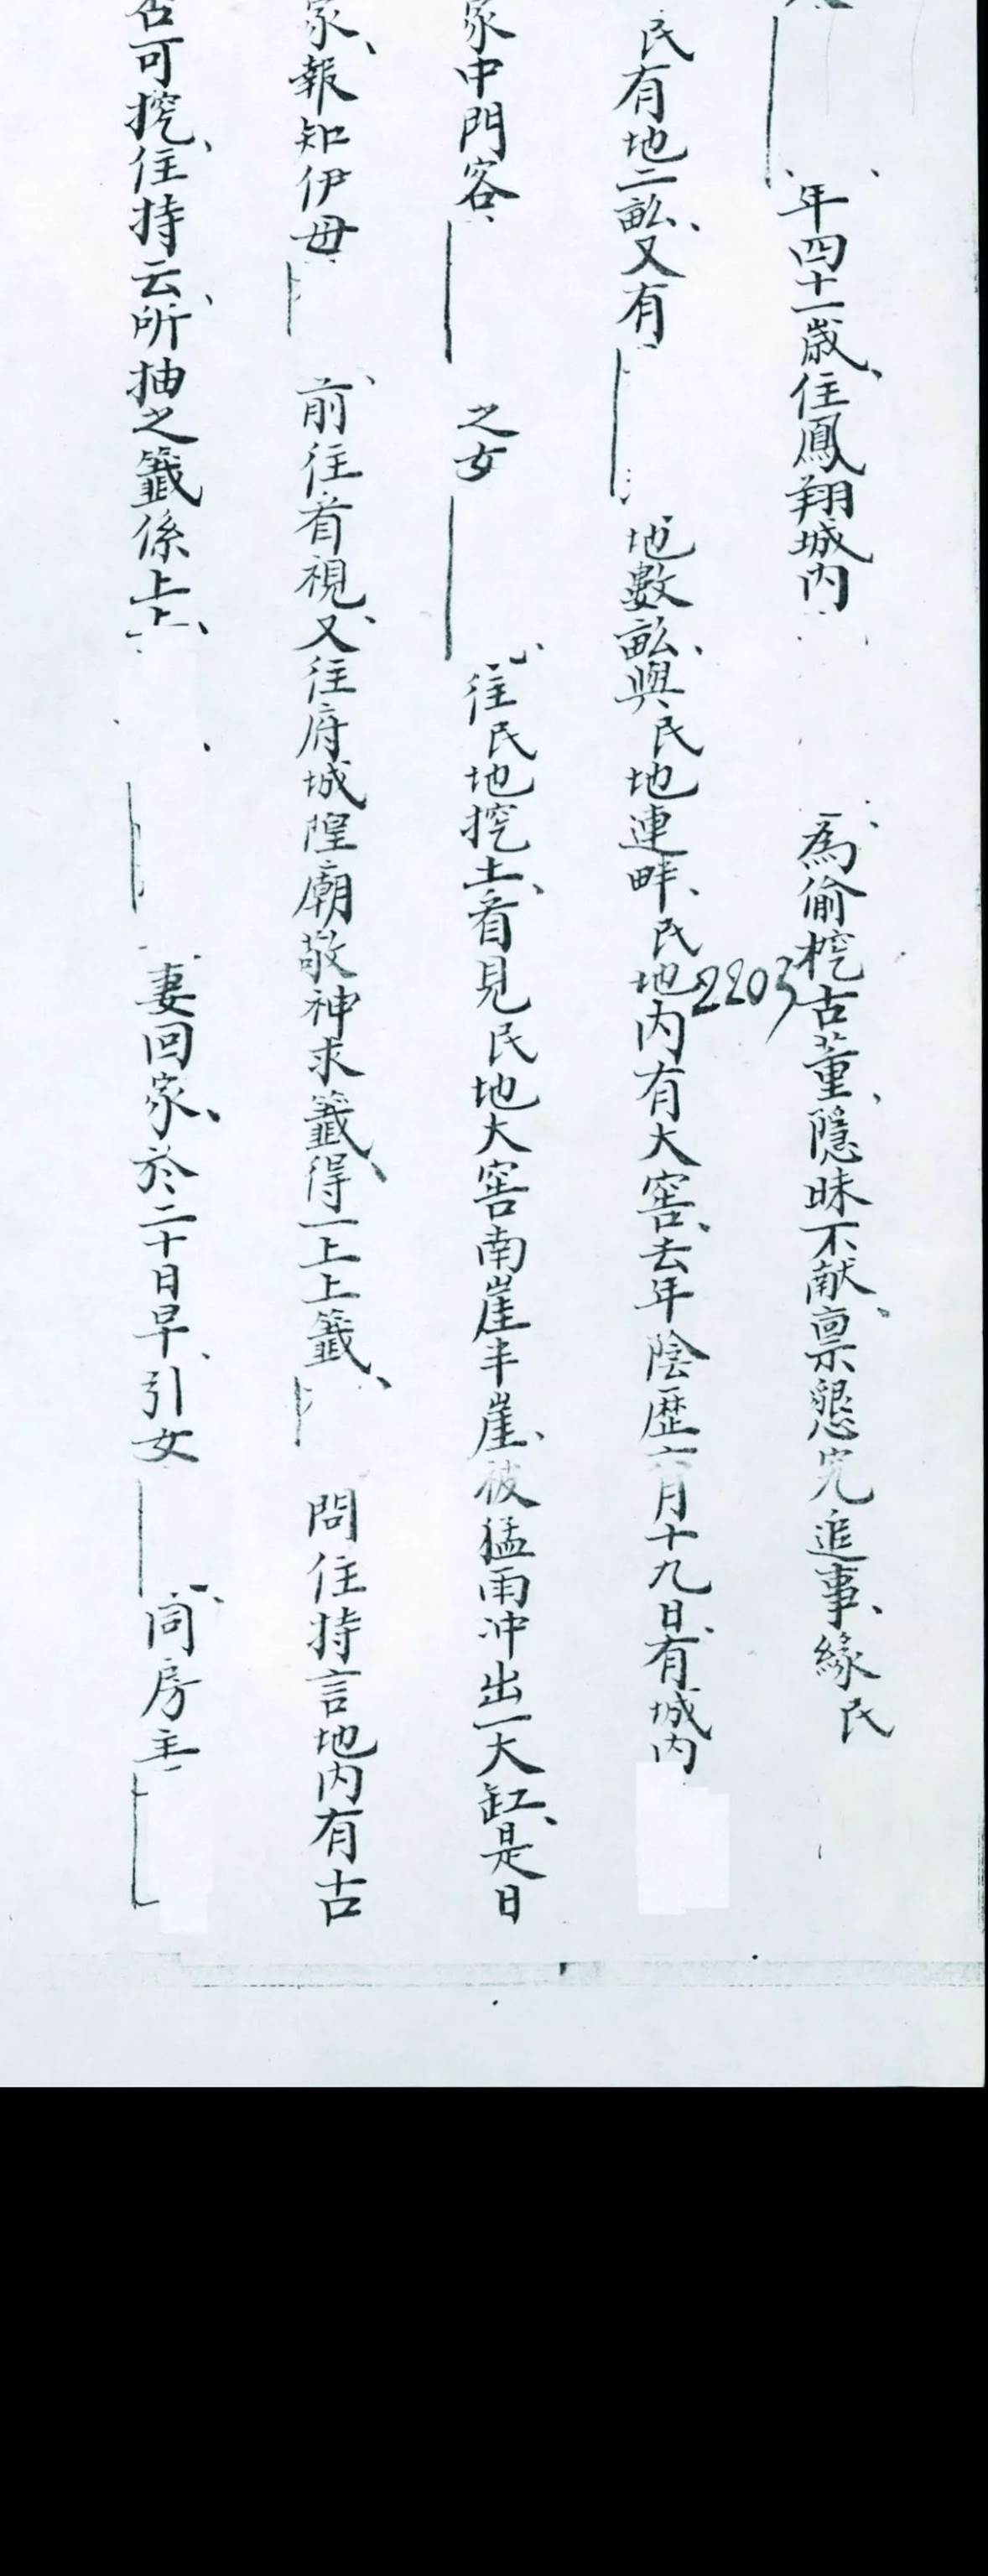 年四十一歲、住鳳翔城內 為偷挖古董、隱昧不献、禀懇究追事、緣民
民有地二畝、又有 地數畝、與民地連畔、民地內有大窖、去年陰歷六月十九日、有城內
2203
家中門客 之女 往民地挖土、看見民地大窖南崖半崖、被猛雨冲出一大缸、是日
家、報知伊毋 前往看視、又往府城隍廟敬神求籤、得一上上籤、 問住持言地內有古
否可挖、住持云、所抽之籤係上上、 妻回家、於二十日早、引女 同房主